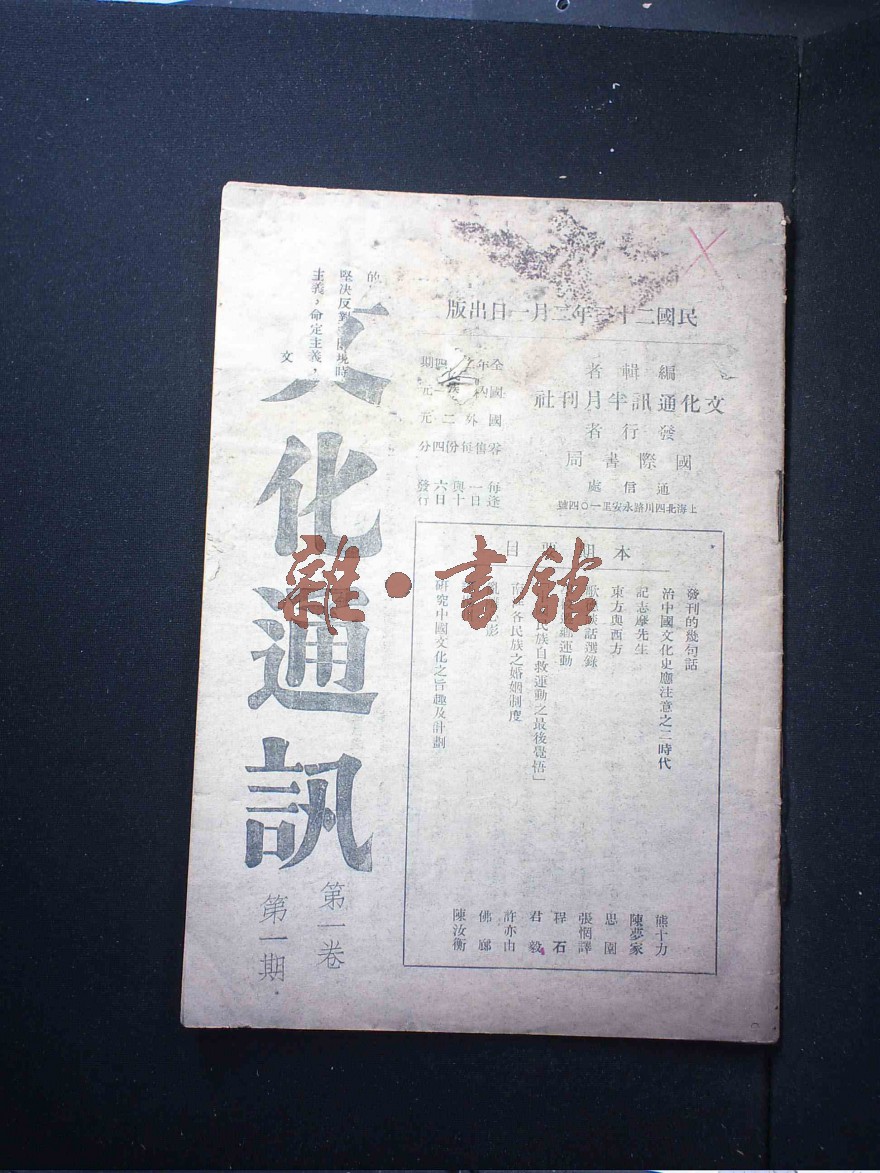 民國二十三年二月一日出版
編輯者
文化通訊半月刊社
發行者
國際書局
通信處
上海北四川路永安里一〇四號
全年 四期
國內 元
國外二元
零售每份四分
每逢一日與十六日發行
本期要目
發刊的幾句話
治中國文化史應注意之二時代 熊十力
記志摩先生 陳夢家
東方與西方 思園
歌德談話選錄 張惘譯
運動 程石
民族自救運動之最後覺悟」 君毅
各民族之婚姻制度 許亦由
影 佛郎
研究中國文化之旨趣及計劃 陳汝衡
文化通訊
第一卷
第一期
的
堅決反對 境時
主義,命定主義,
文
雜·書館